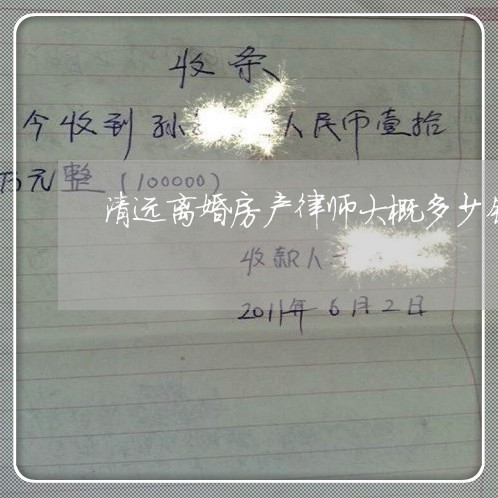 收条
今收到孙 人民币壹拾
万元整（100000）
清远离婚房产律师大概多少
收款人
2011年6月2日